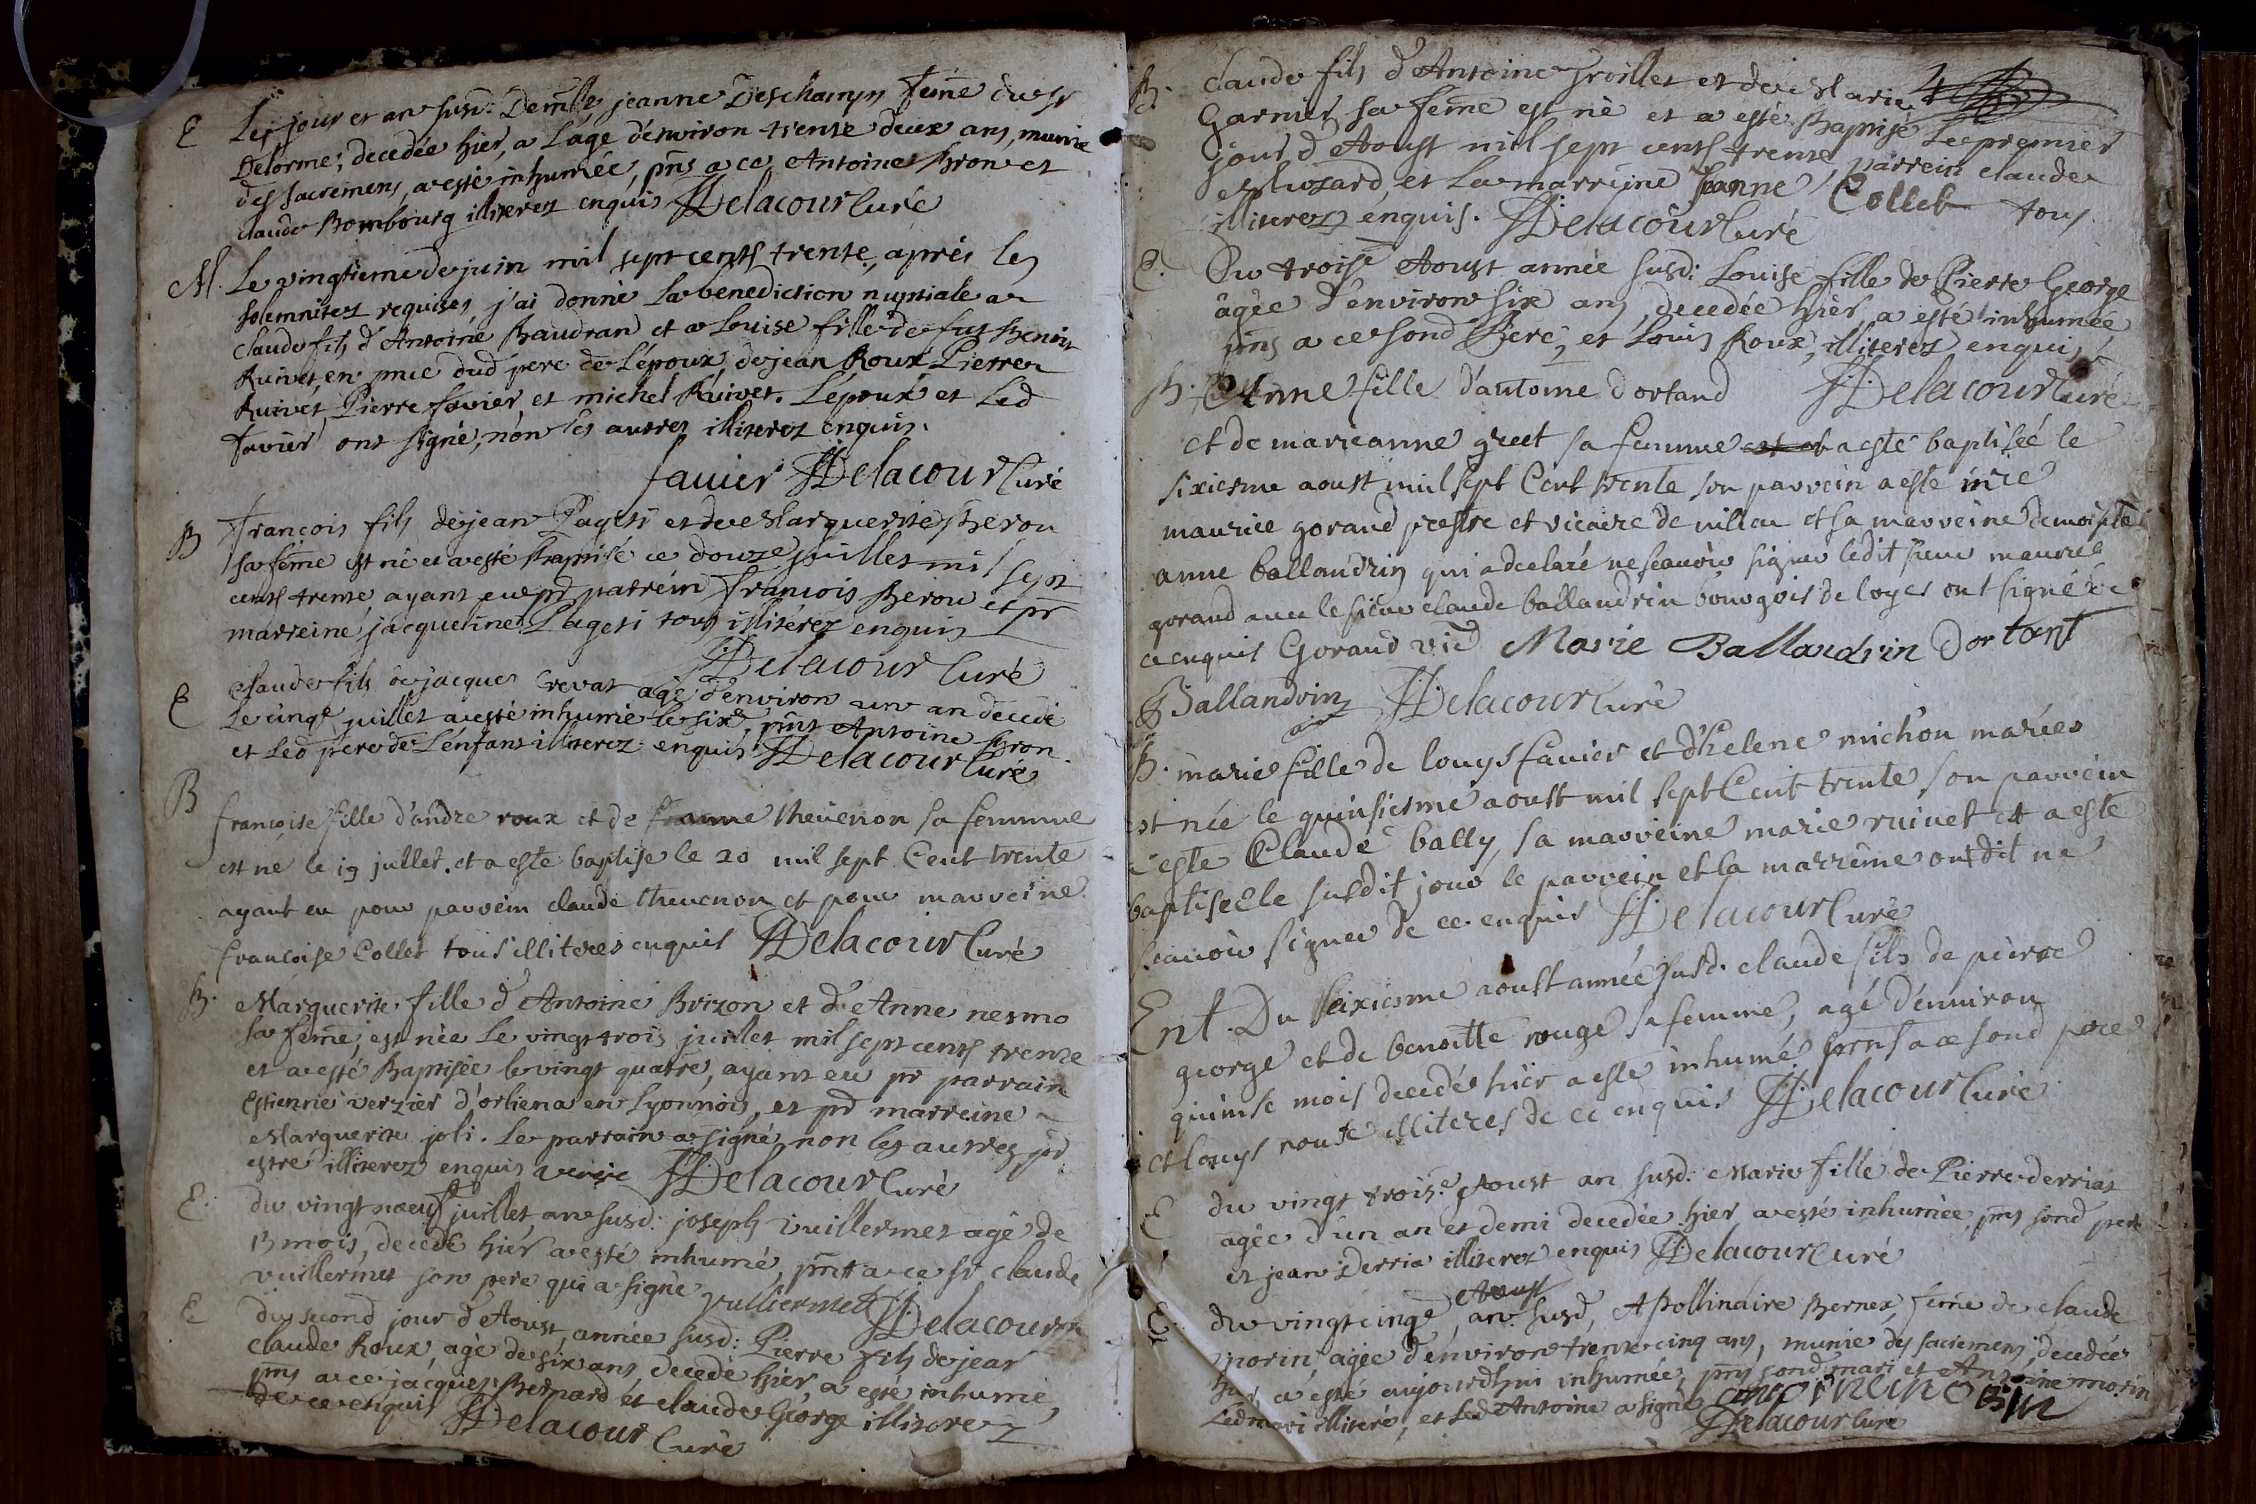 E Les jour et an susd: Demlle jeanne Deschamps feme du Sr
Delorme; decedée hier, a L'age d'environ trente deux ans, munie
des sacremens, a esté inhumée, pns a ce Antoine Bron et
claude Bombourg illiterez enquis Delacour Curé
M. Le vingtieme de juin mil sept cents trente, aprés les
solemnitez requises, j'ai donné La benediction nuptiale a
Claude fils d'Antoine Baudran et a Louise fille de fut Benoit
Ruivet, en pnce dud pere de L'époux, de jean Roux Pierre
Ruivet, Pierre favier et michel Ruivet. L'époux et Led
favier ont signé, non les autres illiterez enquis.
favier Delacour Curé
B François fils de jean Pageti et de Marguerite Beron
sa feme est né et a esté Baptisé ce douze juillet mil sept
cents trente ayant eu pr parrein François Beron et pr
marreine jacqueline Pageti tous illiterez enquis
Delacour Curé
E Claude fils de jacques Crevat agé d'environ un an decedé
Le cinqe juillet a esté inhumé le sixe, pnts Antoine Bron
et Led pere de L'enfant illiterez enquis Delacour Curé
B françoise fille d'andre roux et de thevenon sa femme
est ne le 19 jullet. et a este baptise le 20 mil sept Cent trente
ayant eu pour parrein claude thevenon et pour marreine
francoise Collet tous illiteres enquis Delacour Curé
B. Marguerite fille d'Antoine Brizon et d'Anne nesmo
sa feme, est née Le vingt trois juillet mil sept cents trente
et a esté Baptisée le vingt quatre, ayant eu pr parrain
Estienne verzier d'orliena en Lyonnois, et pr marreine
Marguerite joli. Le parrain a signé, non les autres pr
estre illiterez enquis Delacour Curé
E. du vingt noeuf juillet, an susd: joseph vuillermet agé de
13 mois, decedé hier a esté inhumé, pnt a ce sr claude
vuillermet son pere qui a signé vulliermet Delacour
E du second jour d'Aoust, année susd: Pierre fils de jean
claude Roux, agé de six ans, decedé hier, a esté inhumé,
pns a ce jacques Bernard et claude George illiterez
de ce enquis Delacour Curé
4
B. Claude fils d'Antoine Groillet et de Marie
Garnier sa feme est né et a esté Baptisé Le premier
jour d'Aoust mil sept cents trente, parrein claude
et La marreine jeanne Collet tous
illiterez enquis. Delacour Curé
E. Du troise Aoust année susd: Louise fille de Pierre George
âgée d'environ six ans, decedée hier, a esté inhumée
pns a ce sond Pere, et Louis Roux, illiterez enquis
B. Anne fille d'antoine dortand Delacour Curé
et de marieanne gret sa femme a esté baptisée le
sixiesme aoust mil sept Cent trente son parrein a este mre
maurice gorand prestre et vicaire de villeu et sa marreine demoiselle
anne ballandrin qui a declaré ne scavoir signer ledit sieur maurice
gorand avec le sieur claude ballandrin bourgois de loyes ont signé de
ce enquis Gorand vic Marie Ballandrin Dortant
Ballandrin Delacour Curé
B. marie fille de louys favier et d'helene michon mariés
est née le quinsiesme aoust mil sept Cent trente son parrein
a este Claude bally, sa marreine marie ruivet et a este
baptisée le susdit jour le parrein et la marreine ont dit ne
scavoir signer de ce enquis Delacour Curé
Ent. Du seixiesme aoust année susd. claude fils de pierre
george et de benoitte rouge sa femme, agé d'environ
quinse mois decedé hier a este inhumé presns a ce sond pere
et louys illiteres de ce enquis Delacour Curé
E du vingt troise Aoust an susd: Marie fille de Pierre derrias
agée d'un an et demi decedée hier a esté inhumée, pns sond pere
et jean Derria illiterez enquis Delacour Curé
E. du vingtcinqe Aoust, an susd, Apollinaire Bernex, feme de claude
morin agée d'environ trente cinq ans, munie des sacremens, decedée
hier, a esté aujourdhui inhumée, pns sond mari et Antoine morin
Led mari illiteré, et Led Antoine a signé
Delacour Curé